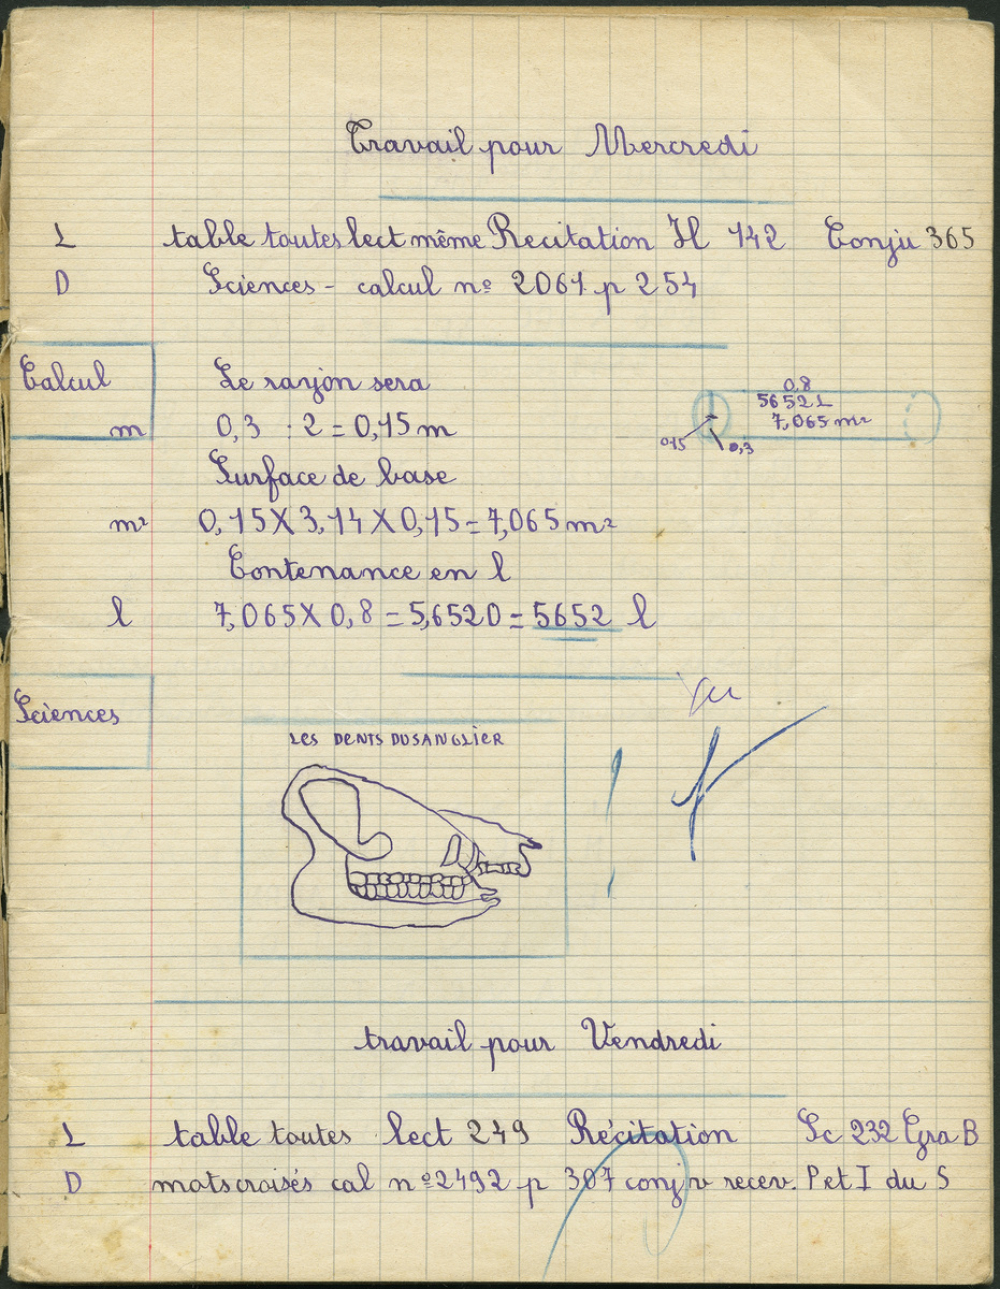 Travail pour Mercredi
L table toutes lect même Recitation H 142 Conju 365
D Sciences - calcul nº 2061 p 254
Calcul Le rayon sera
m 0,3 : 2 = 0,15 m
Surface de base
m² 0,15 X 3,14 X 0,15 = 7,065 m²
Contenance en l
l 7,065 X 0,8 = 5,6520 = 5652 l
0,8
5652 L
7,065 m²
015 0,3
Sciences
Vu
LES DENTS DU SANGLIER
travail pour Vendredi
L table toutes lect 249 Récitation Sc 232 Gra B
D mots croisés cal nº 2492 p 307 conj v recev. P et I du S